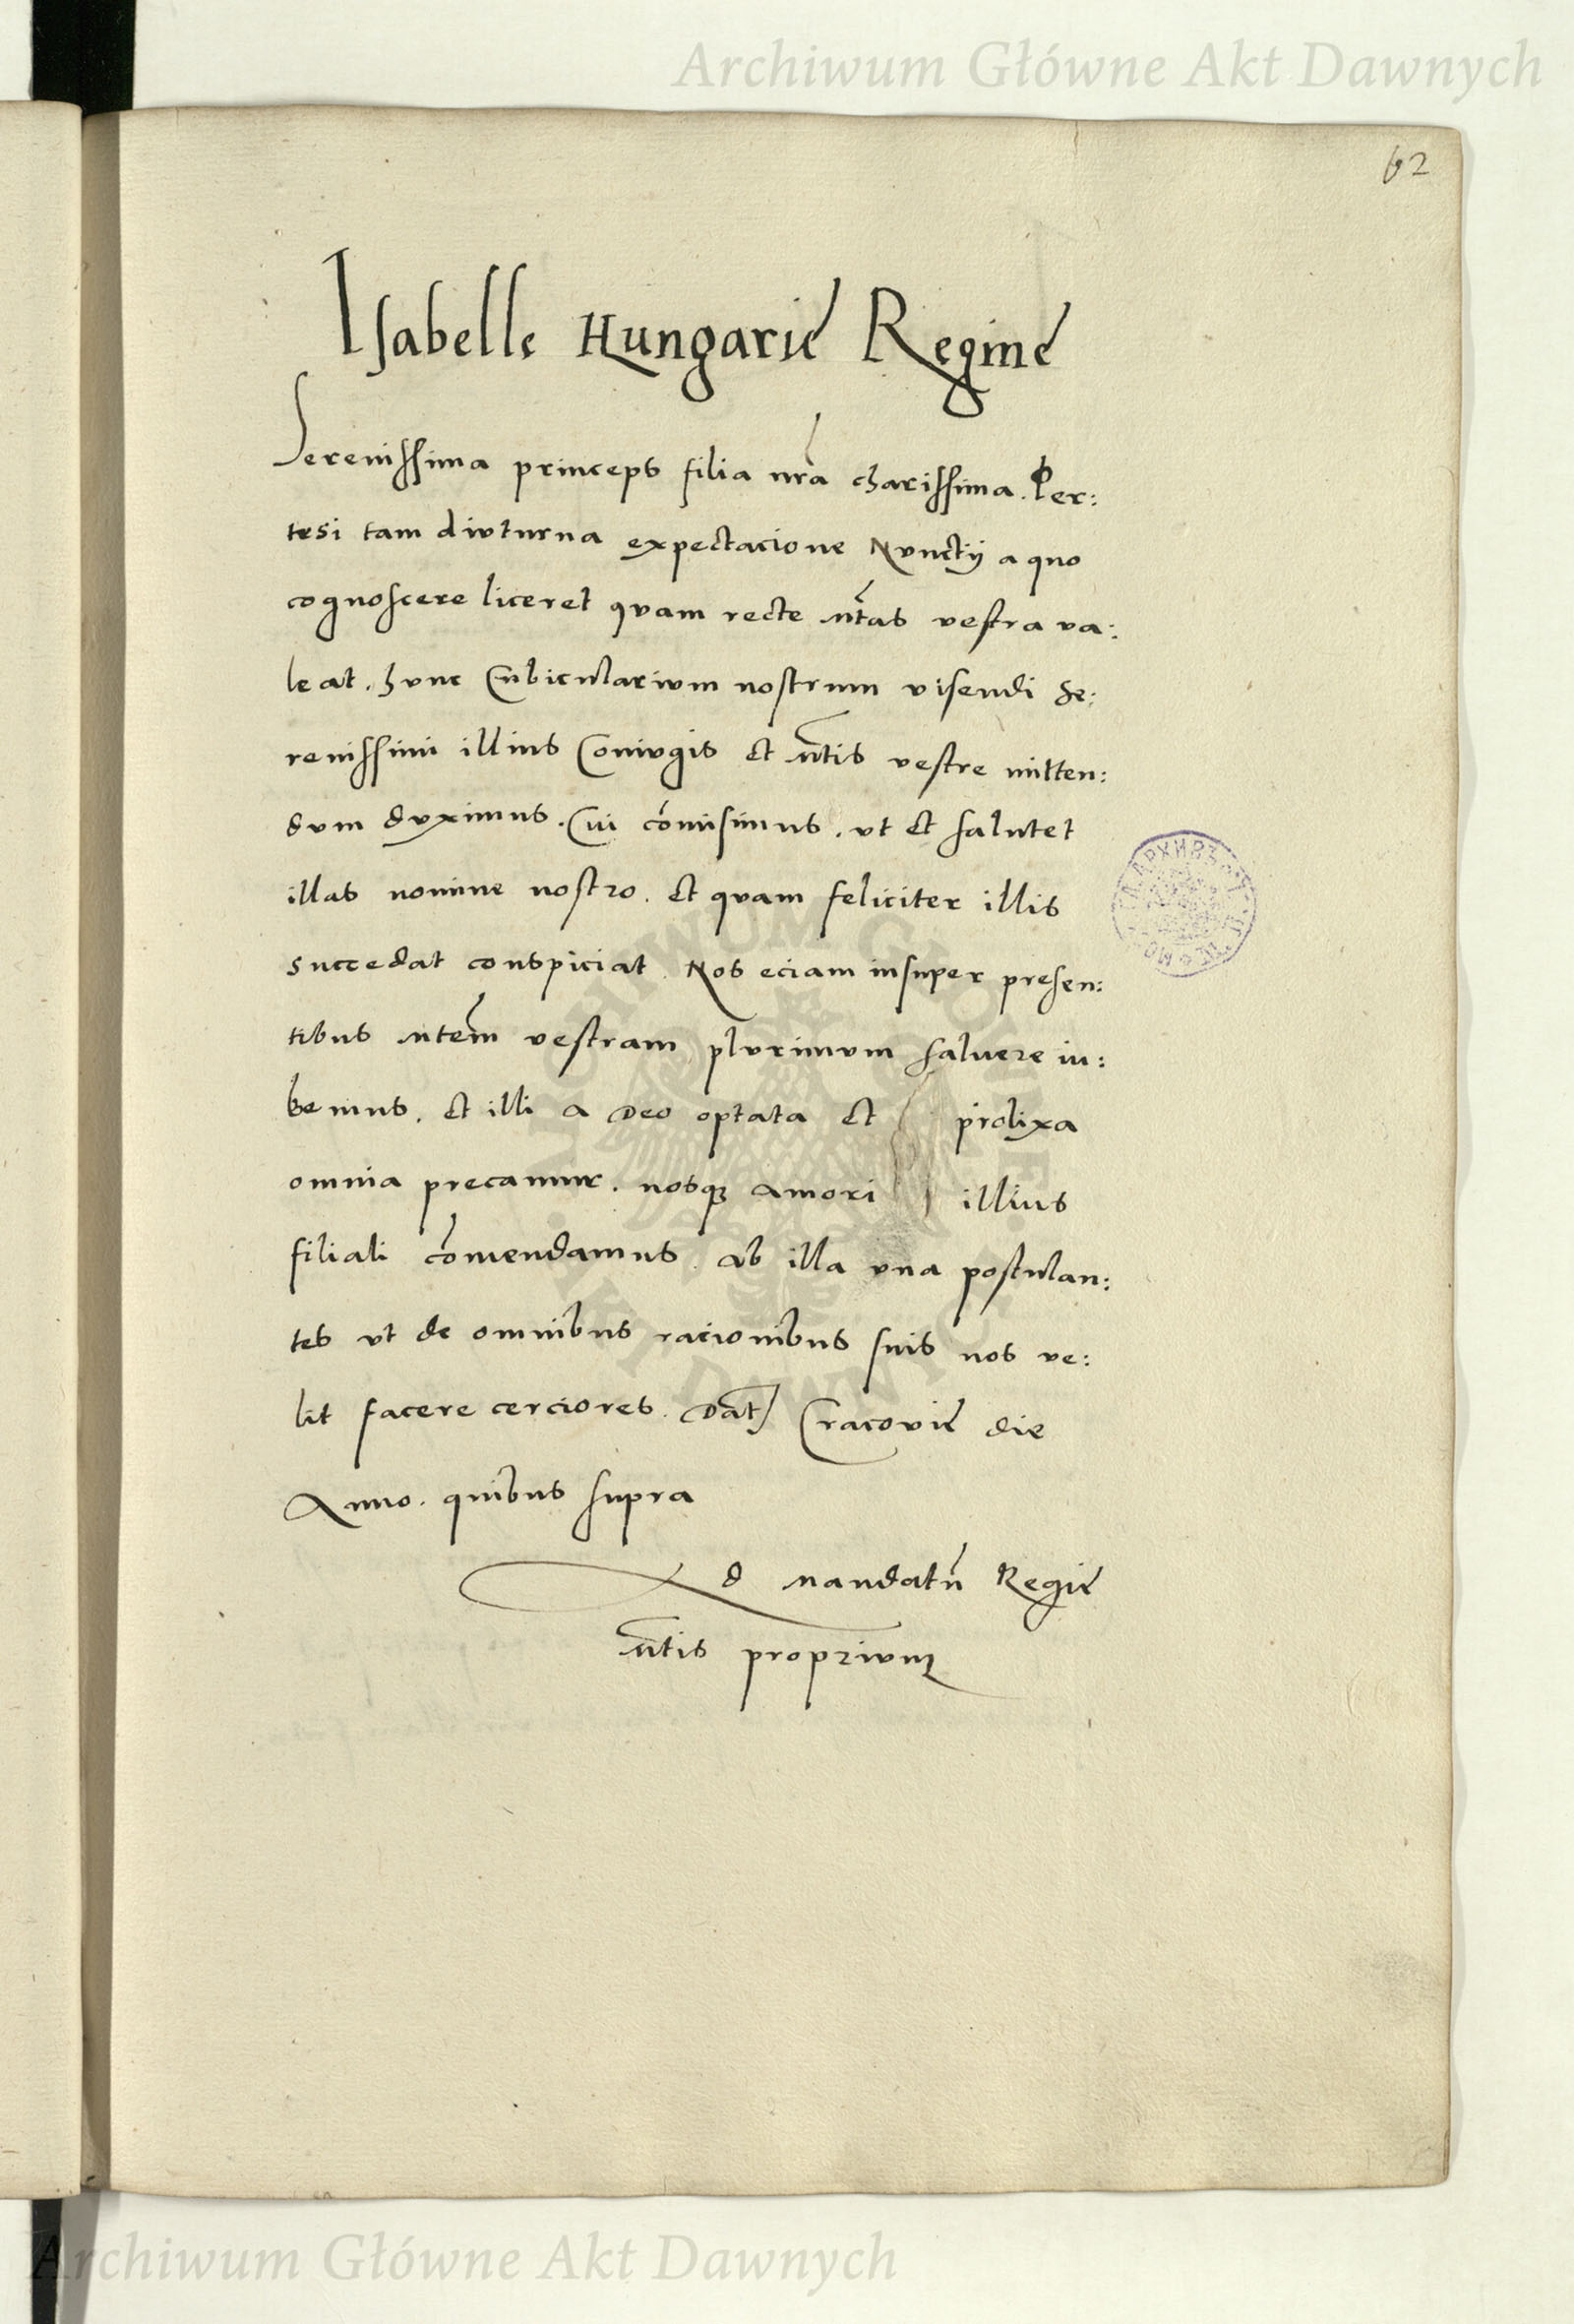 Archiwum Główne Akt Dawnych
62
Isabelle Hungarie Regine
Serenissima princeps filia nrã charissima. Per:
tesi tam divturna expectacione Nvnctij a quo
cognoscere liceret qvam recte Mtas vestra va:
leat. hvnc Cubicularivm nostrum visendi Se:
renissimi illius Conivgis et Mtis vestre mitten:
dvm dvximus. Cui cõmisimus. vt et salutet
illas nomine nostro. et qvam feliciter illis
succedat conspiciat. Nos eciam insuper presen:
tibus Mtem vestram plvrimvm salvere iu:
bemus. et illi a Deo optata et prolixa
omnia precamur. nosq; amori illius
filiali cõmendamus. ab illa vna postulan:
tes vt de omnibus racionibus suis nos ve:
lit facere cerciores. Dat Cracovie die
Anno. quibus supra
Ad mandatũ Regie
Mtis proprivm
ARCHIWUM GŁÓWNE AKT DAWNYCH
Archiwum Główne Akt Dawnych